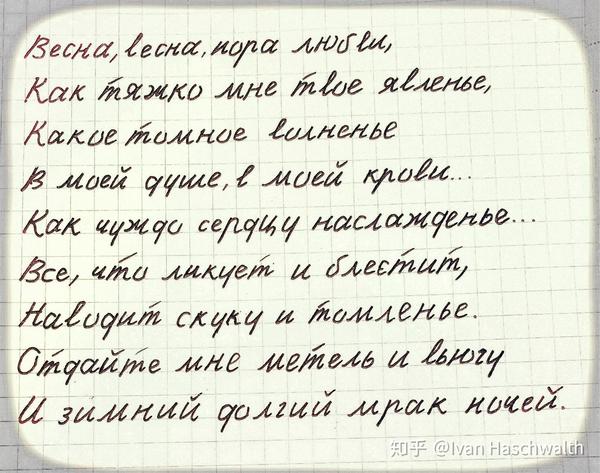 Весна, весна, пора любви,
Как тяжко мне твое явленье,
Какое томное волненье
В моей душе, в моей крови...
Как чуждо сердцу наслажденье...
Все, что ликует и блестит,
Наводит скуку и томленье.
Отдайте мне метель и вьюгу
И зимний долгий мрак ночей.
知乎 @Ivan Haschwalth